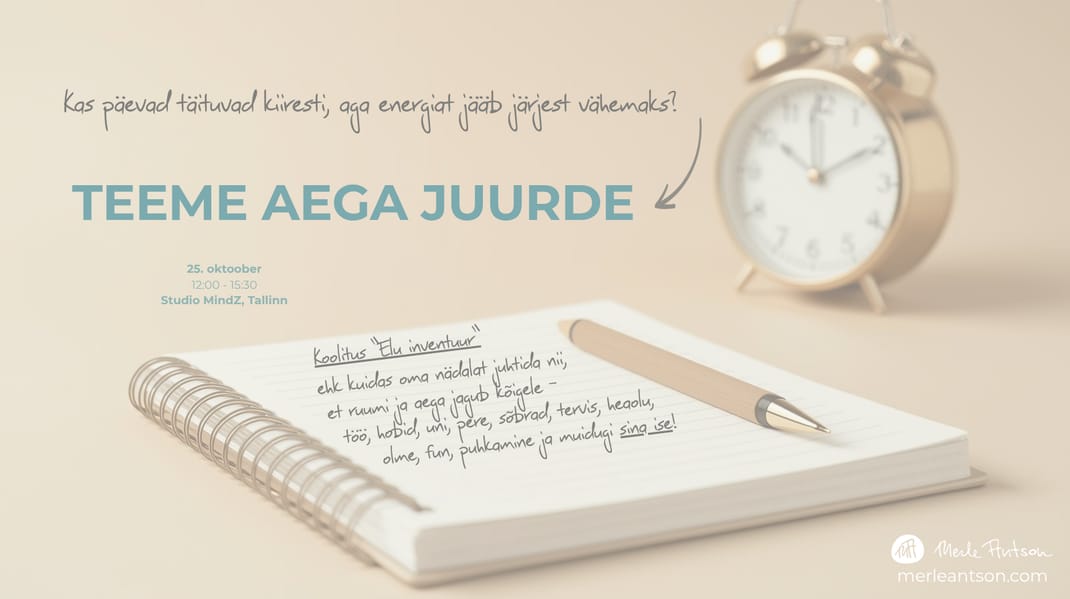 Kas päevad täituvad kiiresti, aga energiat jääb järjest vähemaks?
TEEME AEGA JUURDE
25. oktoober
12:00 - 15:30
Studio MindZ, Tallinn
Koolitus "Elu inventuur"
ehk kuidas oma nädalat juhtida nii,
et ruumi ja aega jagub kõigele -
töö, hobid, uni, pere, sõbrad, tervis, heaolu,
olme, fun, puhkamine ja muidugi sina ise!
12
1
2
3
4
5
6
7
8
10
MA Merle Antson
merleantson.com